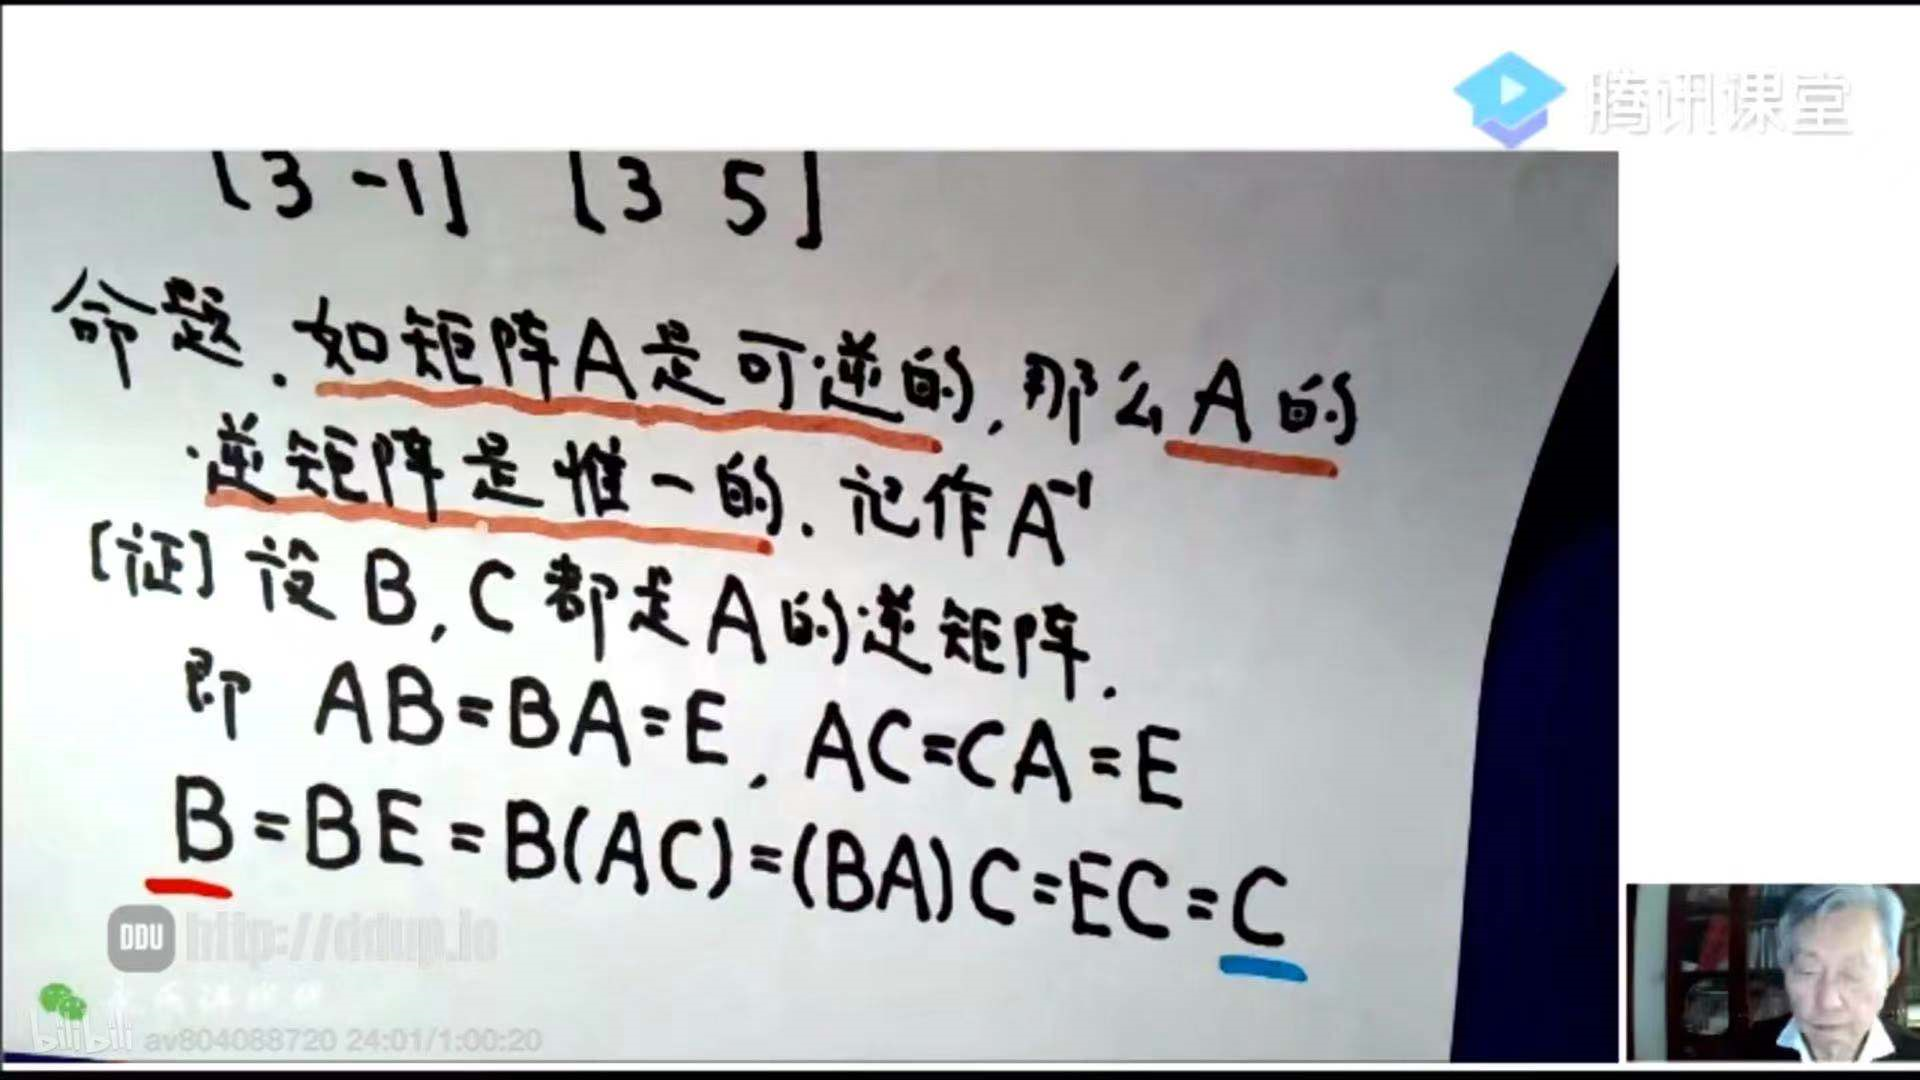 腾讯课堂
[3 -1] [3 5]
命题.如矩阵A是可逆的,那么A的
逆矩阵是惟一的.记作A⁻¹
[证]设B,C都是A的逆矩阵.
即 AB=BA=E, AC=CA=E
B=BE=B(AC)=(BA)C=EC=C
DDU http://ddup.io
bilibili av804088720 24:01/1:00:20